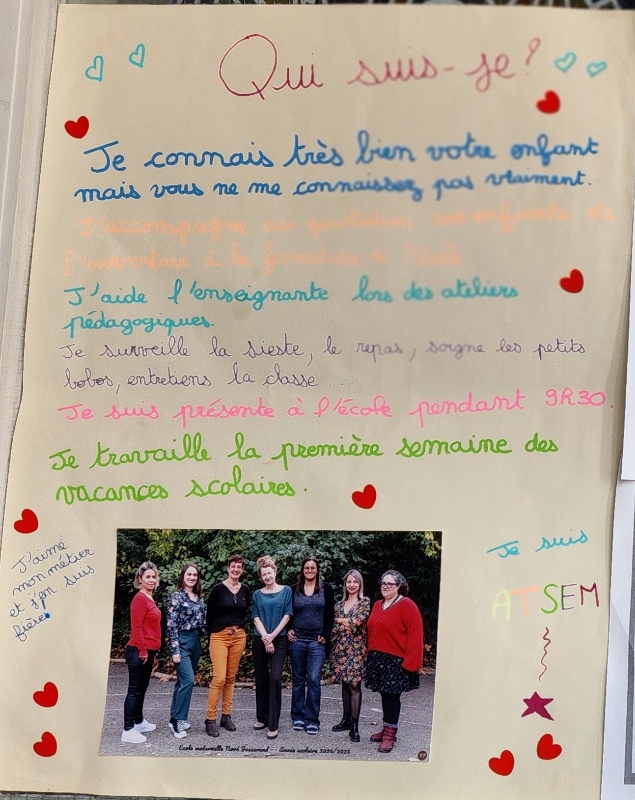 Qui suis-je?
Je connais très bien votre enfant
mais vous ne me connaissez pas vraiment.
J'accompagne au quotidien vos enfants de
l'ouverture à la fermeture de l'école
J'aide l'enseignante lors des ateliers
pédagogiques.
Je surveille la sieste, le repas, soigne les petits
bobos, entretiens la classe ...
Je suis présente à l'école pendant 9R30.
Je travaille la première semaine des
vacances scolaires.
J'aime
mon métier
et j'en suis
fière.
Je suis
ATSEM
Ecole maternelle Noré Année scolaire 2024/2025